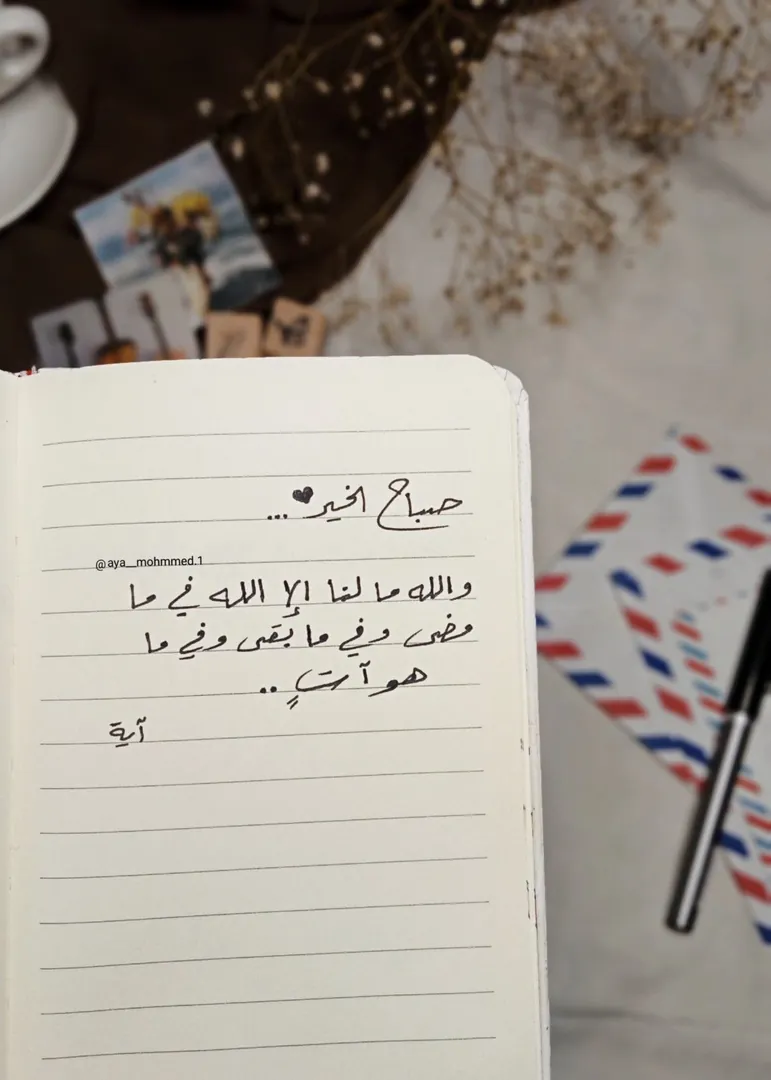 صباح الخير♥...
@aya__mohmmed.1
والله ما لنا إلا الله في ما
مضى وفي ما بَقى وفي ما
هو آتٍ ..
آية